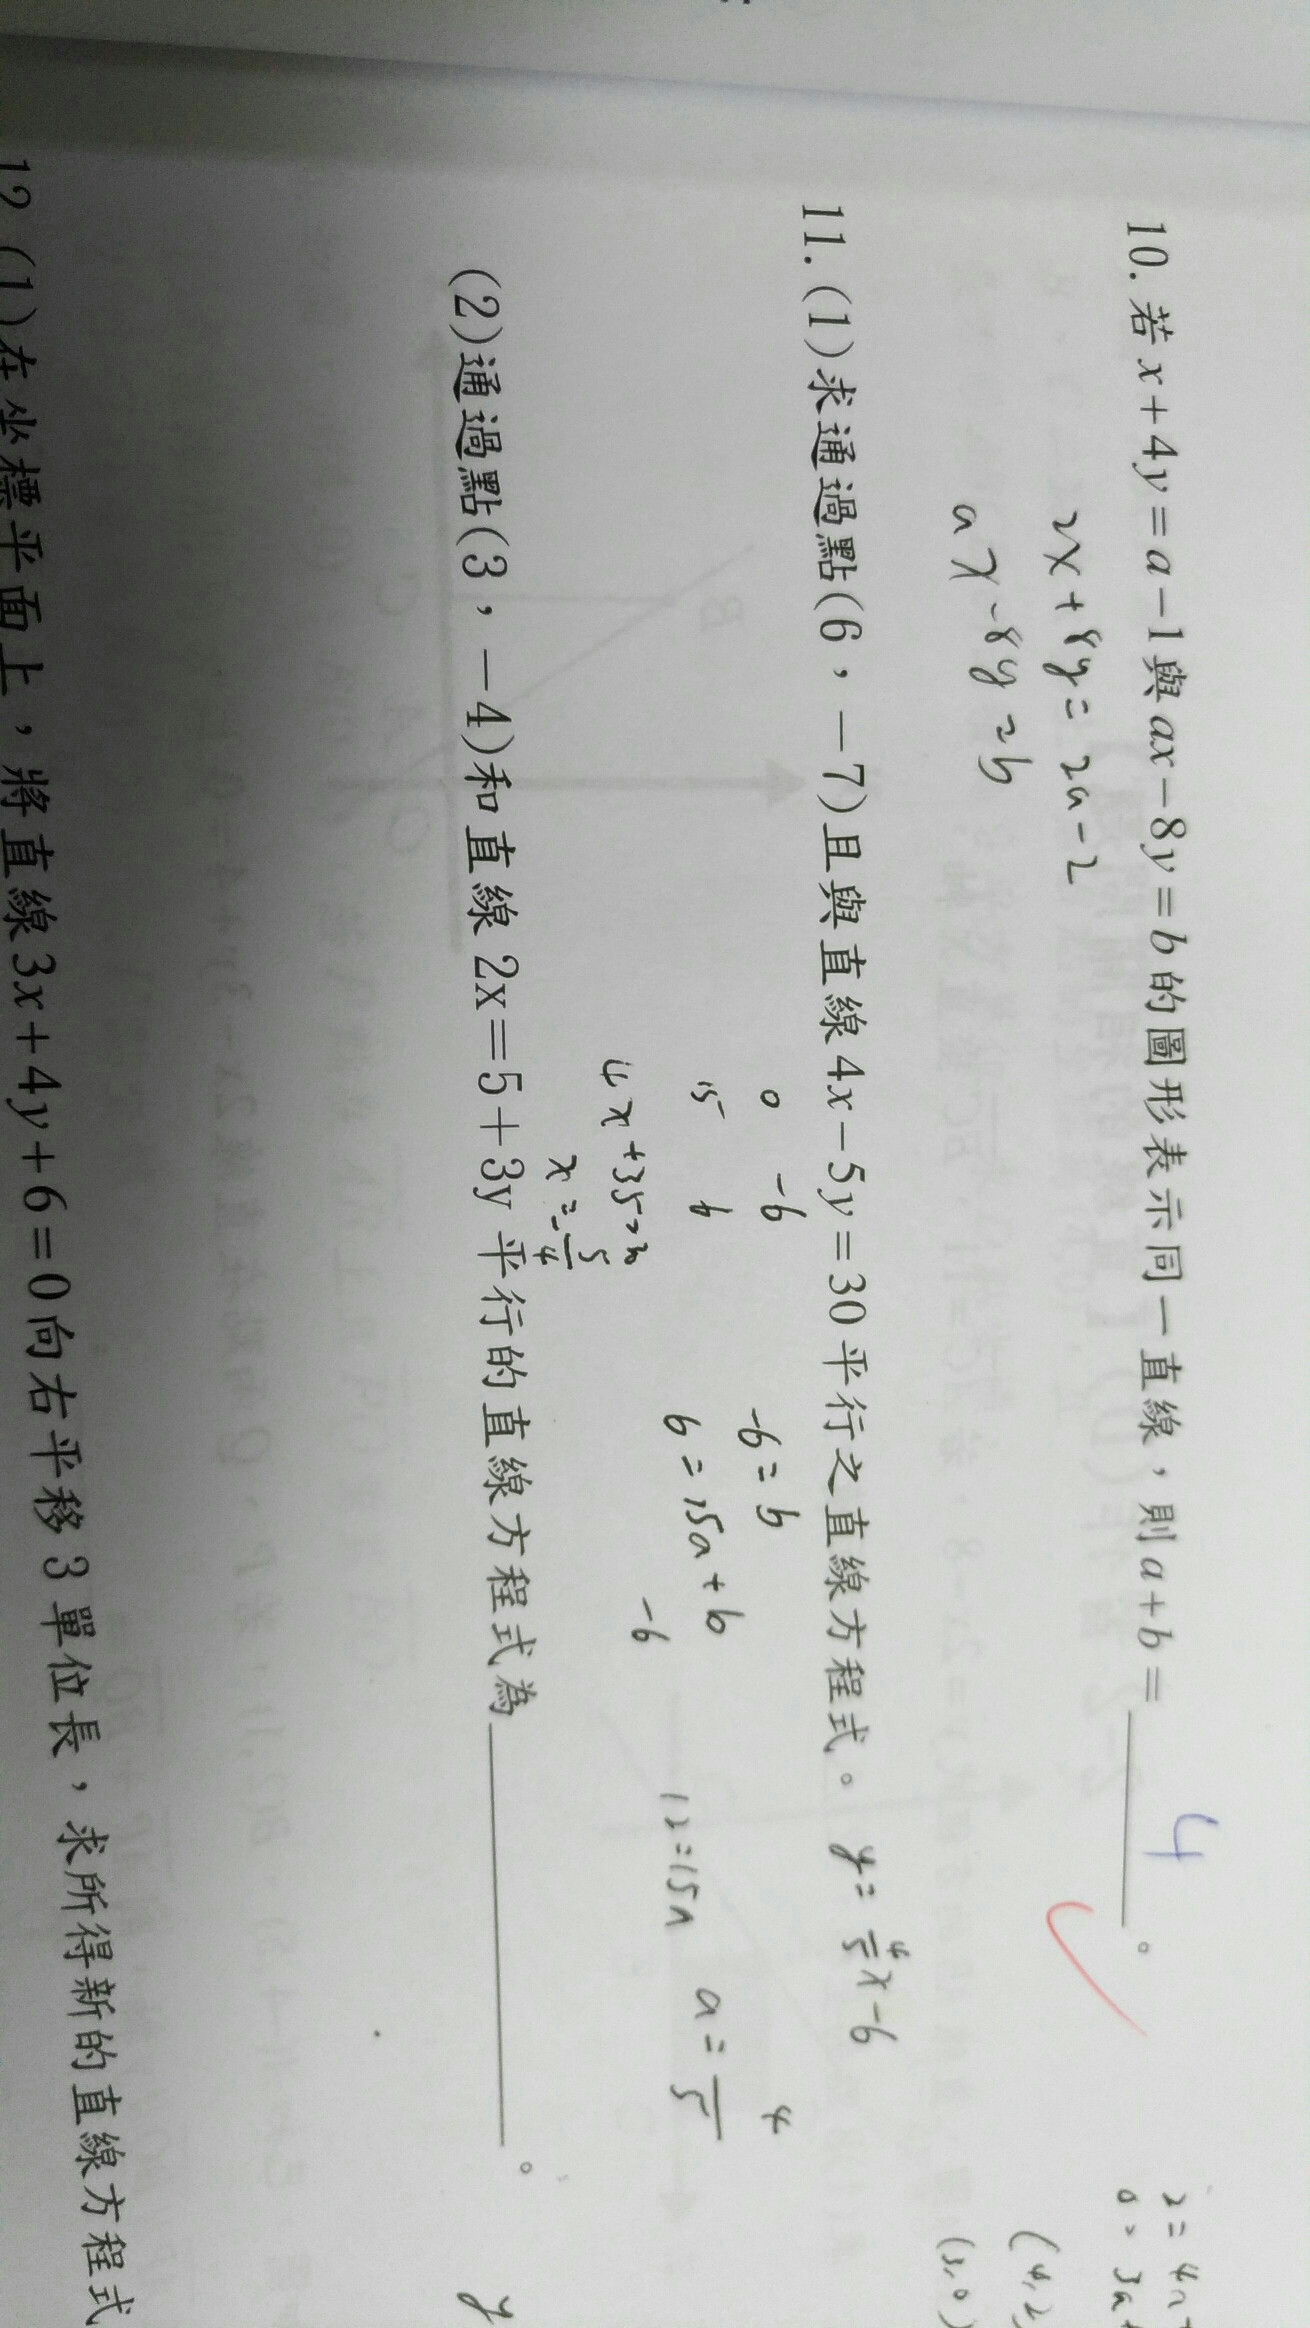 10. 若x+4y=a-1與ax-8y=b的圖形表示同一直線，則a+b=4。
2x+8y=2a-2
ax-8y=b
11. (1)求通過點(6，-7)且與直線4x-5y=30平行之直線方程式。 y=4/5x-6
0 -6
15 6
-6=b
6=15a+b
-6
12=15a a=4/5
x=-5/4
(2)通過點(3，-4)和直線2x=5+3y平行的直線方程式為。
y
12 (1)在坐標平面上，將直線3x+4y+6=0向右平移3單位長，求所得新的直線方程式